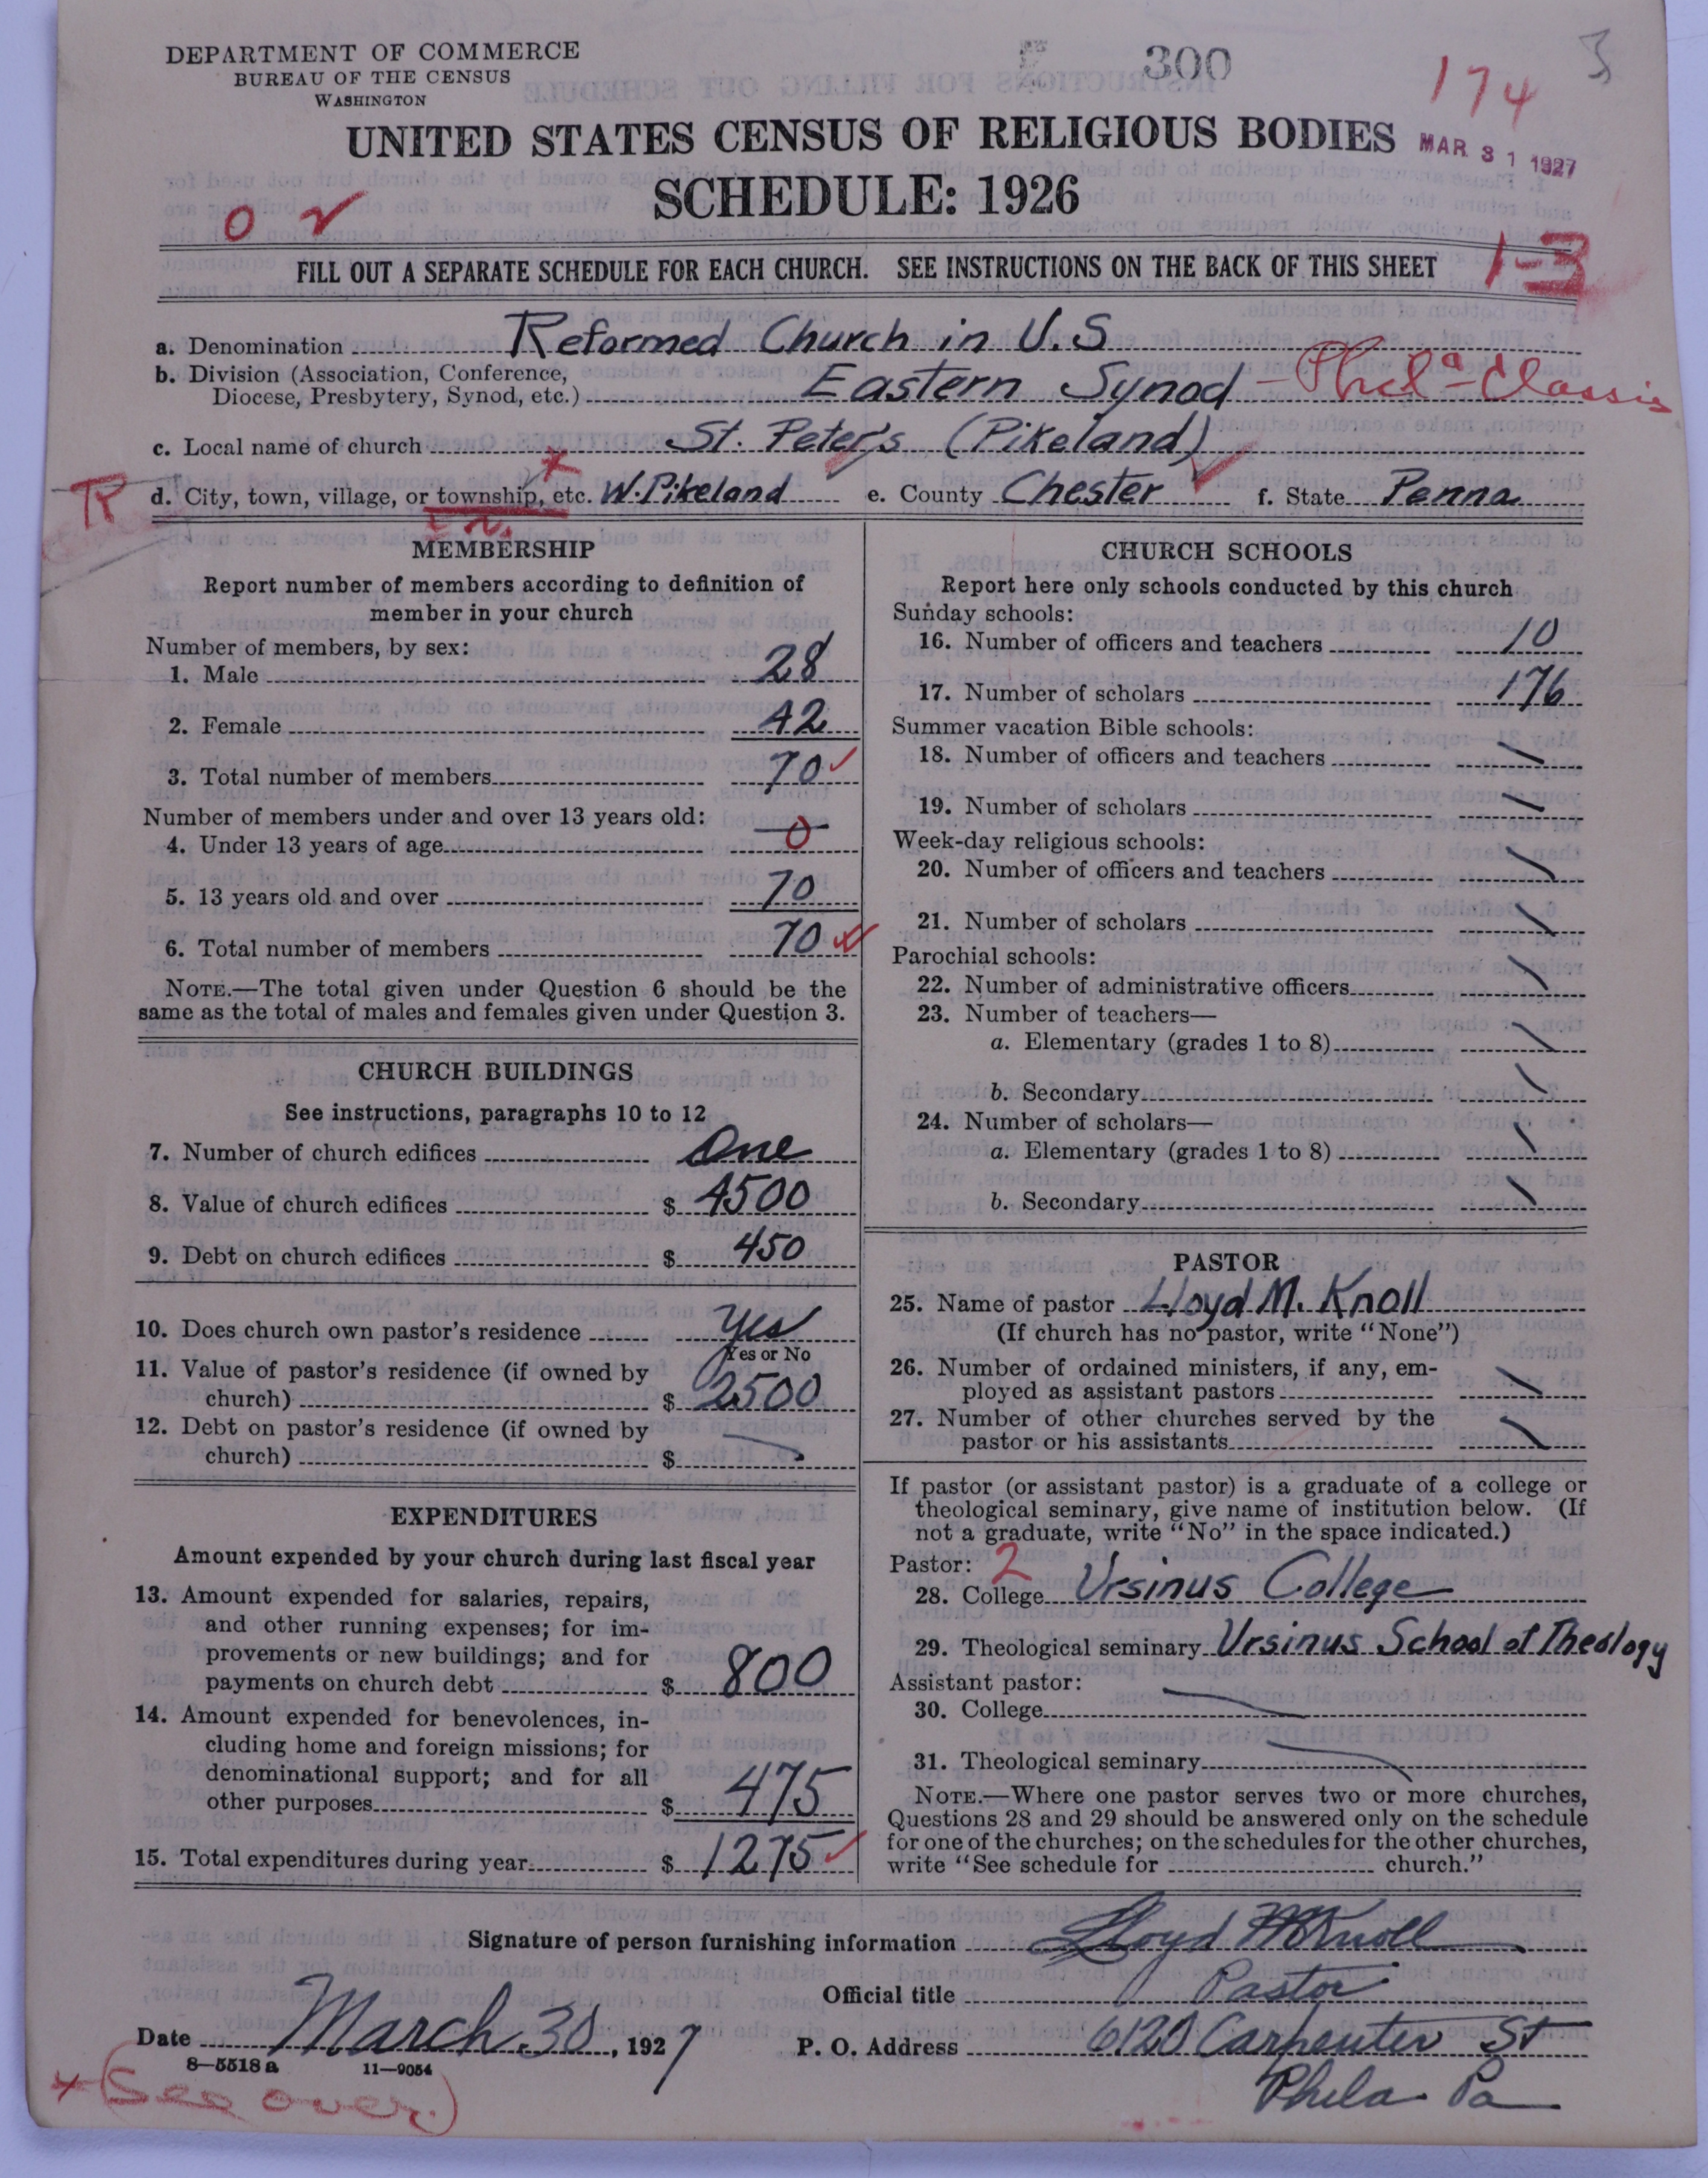 DEPARTMENT OF COMMERCE
BUREAU OF THE CENSUS
WASHINGTON
300
174
3
UNITED STATES CENSUS OF RELIGIOUS BODIES
MAR 31 1927
SCHEDULE: 1926
FILL OUT A SEPARATE SCHEDULE FOR EACH CHURCH. SEE INSTRUCTIONS ON THE BACK OF THIS SHEET
1-3
a. Denomination Reformed Church in U.S
b. Division (Association, Conference, Diocese, Presbytery, Synod, etc.) Eastern Synod - Phila - Classis
c. Local name of church St. Peter's (Pikeland)
R d. City, town, village, or township, etc. W. Pikeland e. County Chester f. State Penna
MEMBERSHIP
Report number of members according to definition of
member in your church
Number of members, by sex:
1. Male 28
2. Female 42
3. Total number of members 70
Number of members under and over 13 years old:
4. Under 13 years of age 0
5. 13 years old and over 70
6. Total number of members 70
NOTE.—The total given under Question 6 should be the
same as the total of males and females given under Question 3.
CHURCH BUILDINGS
See instructions, paragraphs 10 to 12
7. Number of church edifices One
8. Value of church edifices $ 4500
9. Debt on church edifices $ 450
10. Does church own pastor's residence Yes
Yes or No
11. Value of pastor's residence (if owned by
church) $ 2500
12. Debt on pastor's residence (if owned by
church) $
EXPENDITURES
Amount expended by your church during last fiscal year
13. Amount expended for salaries, repairs,
and other running expenses; for im-
provements or new buildings; and for
payments on church debt $ 800
14. Amount expended for benevolences, in-
cluding home and foreign missions; for
denominational support; and for all
other purposes $ 475
15. Total expenditures during year $ 1275
CHURCH SCHOOLS
Report here only schools conducted by this church
Sunday schools:
16. Number of officers and teachers 10
17. Number of scholars 176
Summer vacation Bible schools:
18. Number of officers and teachers
19. Number of scholars
Week-day religious schools:
20. Number of officers and teachers
21. Number of scholars
Parochial schools:
22. Number of administrative officers
23. Number of teachers—
a. Elementary (grades 1 to 8)
b. Secondary
24. Number of scholars—
a. Elementary (grades 1 to 8)
b. Secondary
PASTOR
25. Name of pastor Lloyd M. Knoll
(If church has no pastor, write "None")
26. Number of ordained ministers, if any, em-
ployed as assistant pastors
27. Number of other churches served by the
pastor or his assistants
If pastor (or assistant pastor) is a graduate of a college or
theological seminary, give name of institution below. (If
not a graduate, write "No" in the space indicated.)
Pastor: 2
28. College Ursinus College
29. Theological seminary Ursinus School of Theology
Assistant pastor:
30. College
31. Theological seminary
NOTE.—Where one pastor serves two or more churches,
Questions 28 and 29 should be answered only on the schedule
for one of the churches; on the schedules for the other churches,
write "See schedule for church."
Signature of person furnishing information Lloyd M Knoll
Official title Pastor
Date March 30, 1927 P. O. Address 6120 Carpenter St
8—5518 a 11—9054
Phila Pa
x (See over)